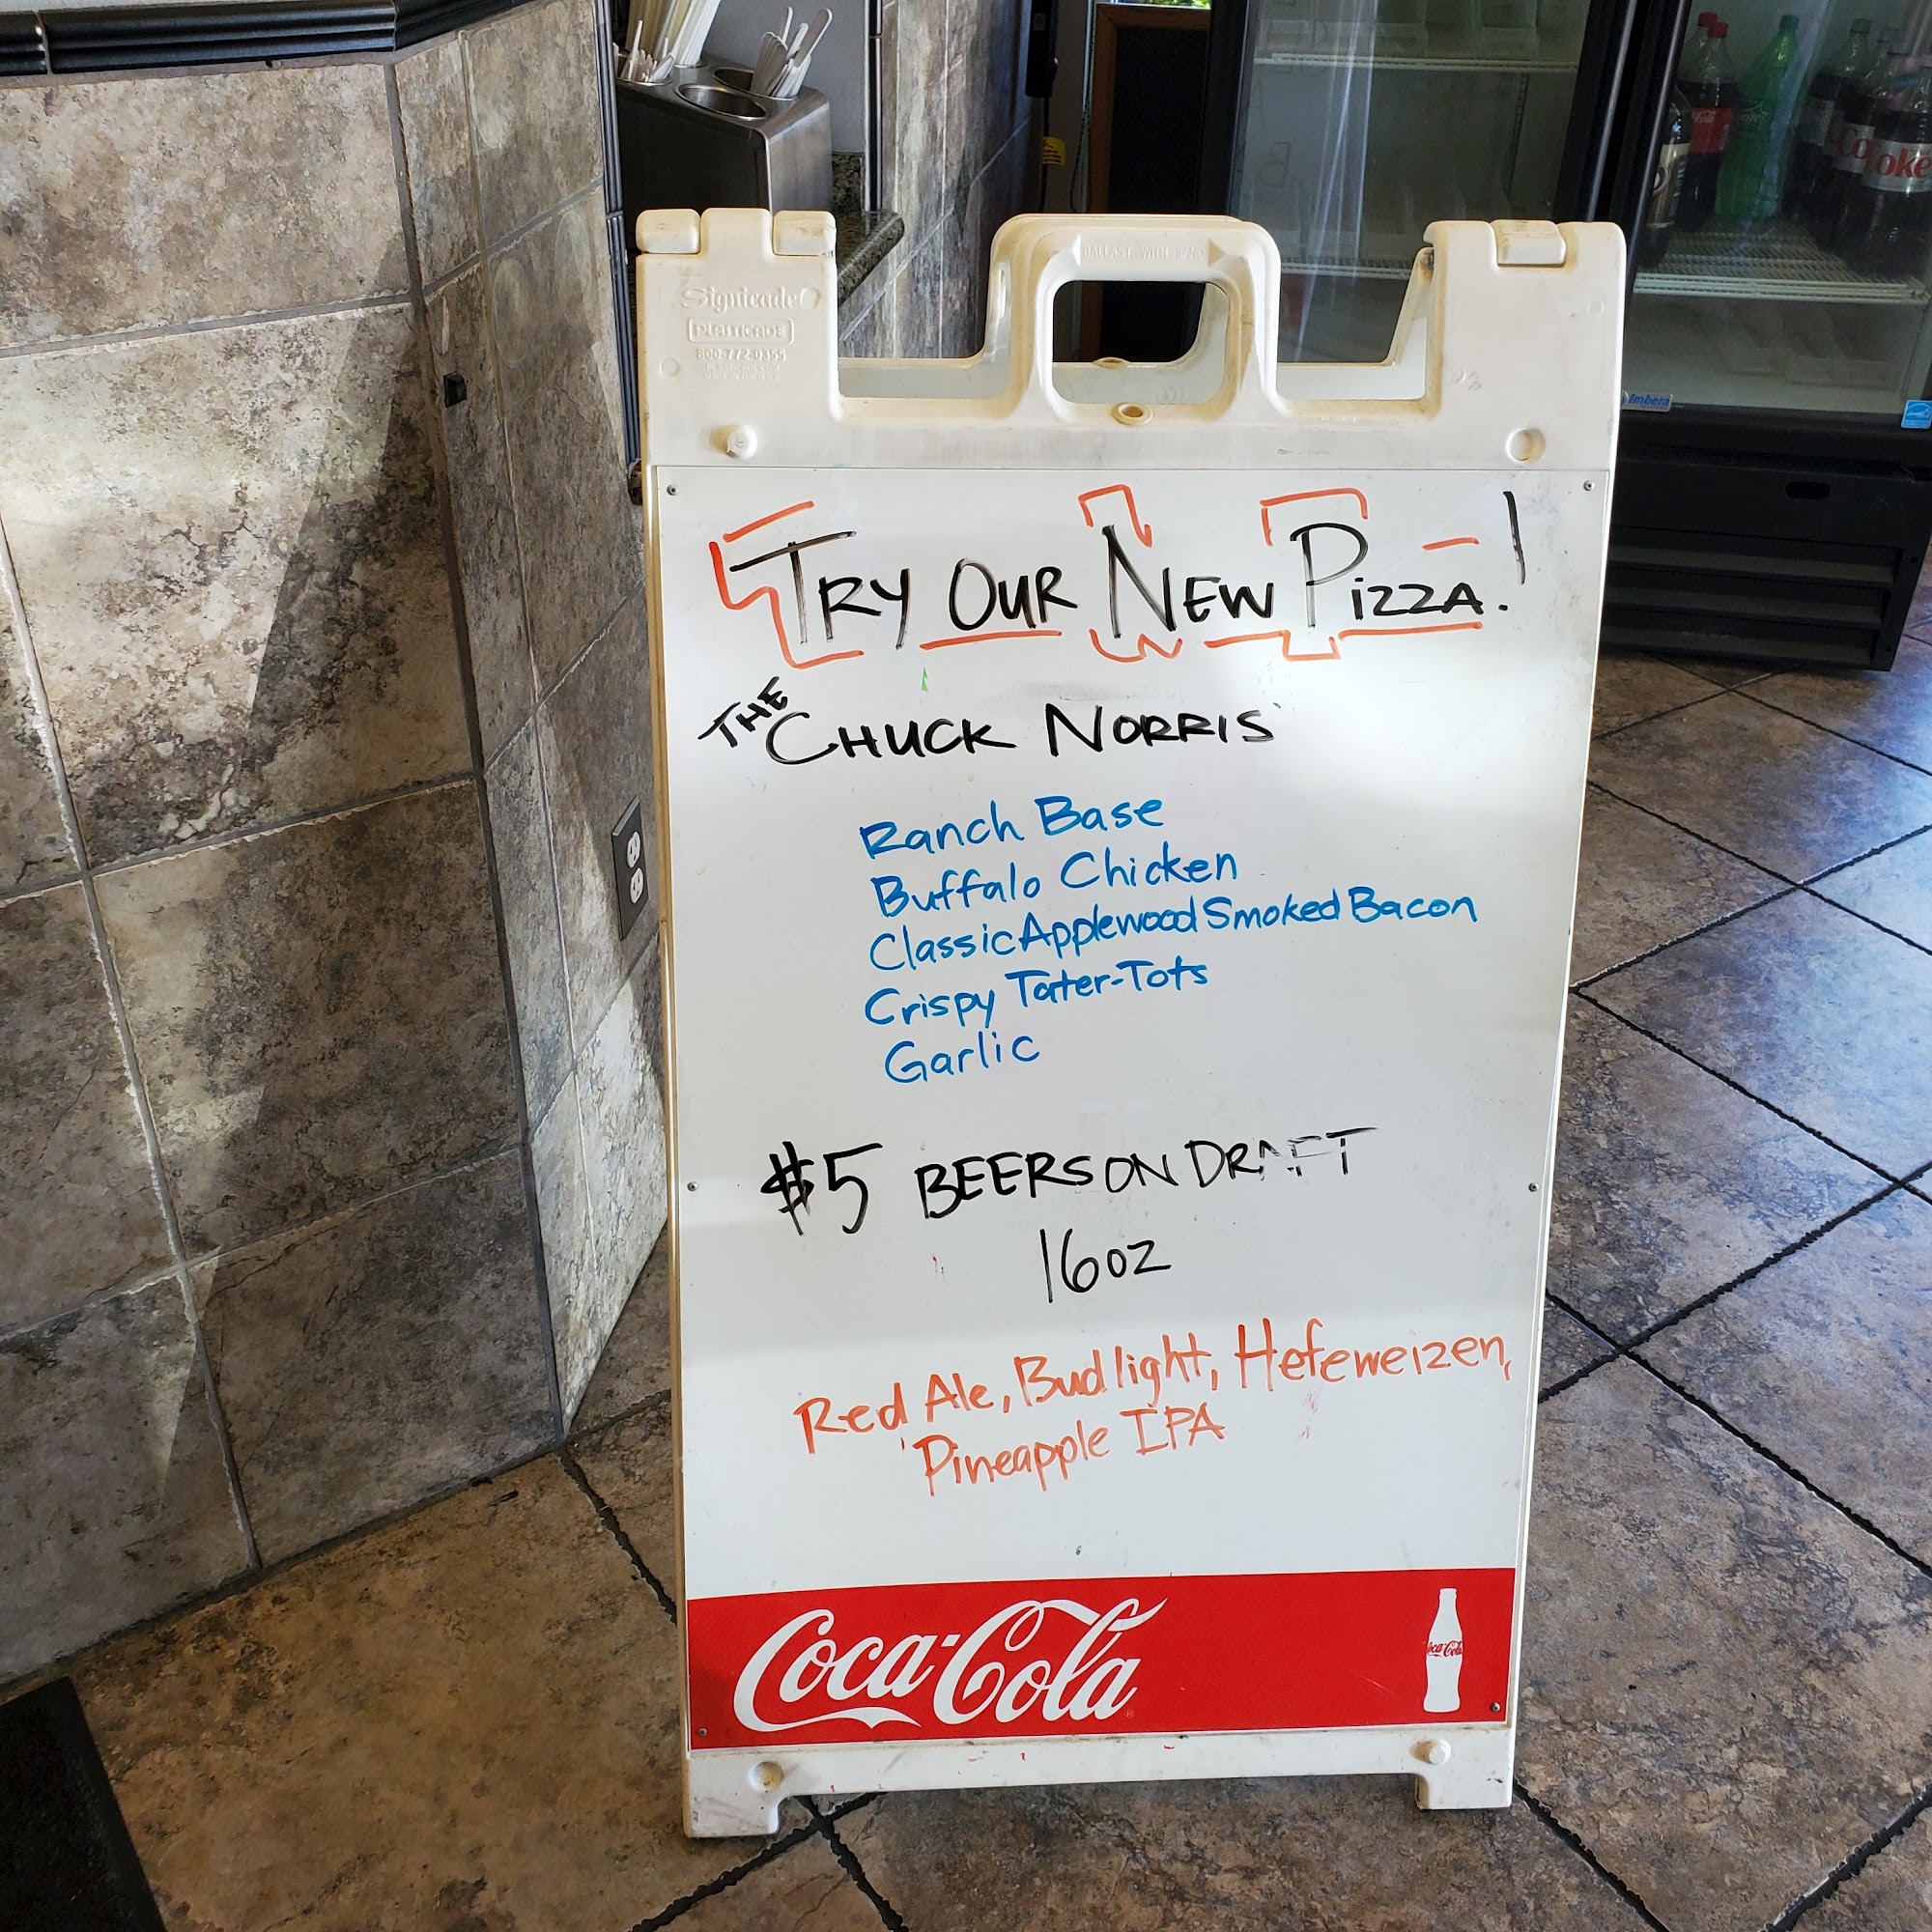 BALLAST WITH SAND
Signicade
PLASTICADE
800-772-0355
Coke
Imbera
TRY OUR NEW PIZZA!
THE CHUCK NORRIS
Ranch Base
Buffalo Chicken
Classic Applewood Smoked Bacon
Crispy Tater-Tots
Garlic
$5 BEERS ON DRAFT
16oz
Red Ale, Bud light, Hefeweizen,
Pineapple IPA
Coca-Cola
Coca-Cola